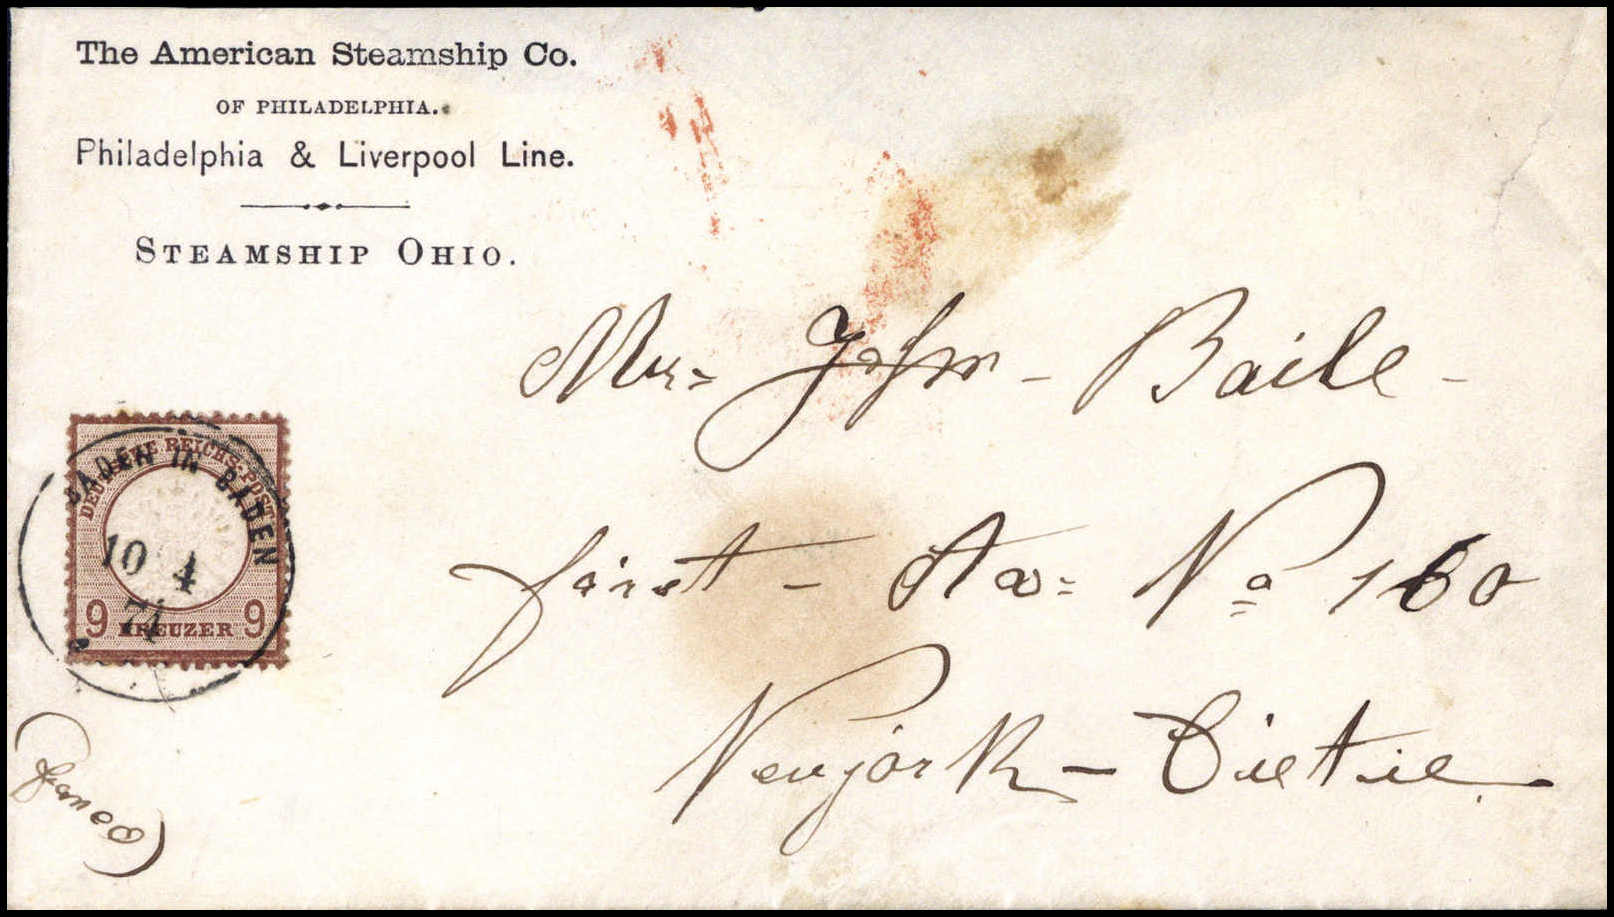 The American Steamship Co.
OF PHILADELPHIA.
Philadelphia & Liverpool Line.
STEAMSHIP OHIO.
Mr= John - Baile -
first - Av= No 160
Newjork - Cietie.
DEUTSCHE REICHS-POST
BADEN IN BADEN
10 4
74
9 KREUZER 9
(franco)